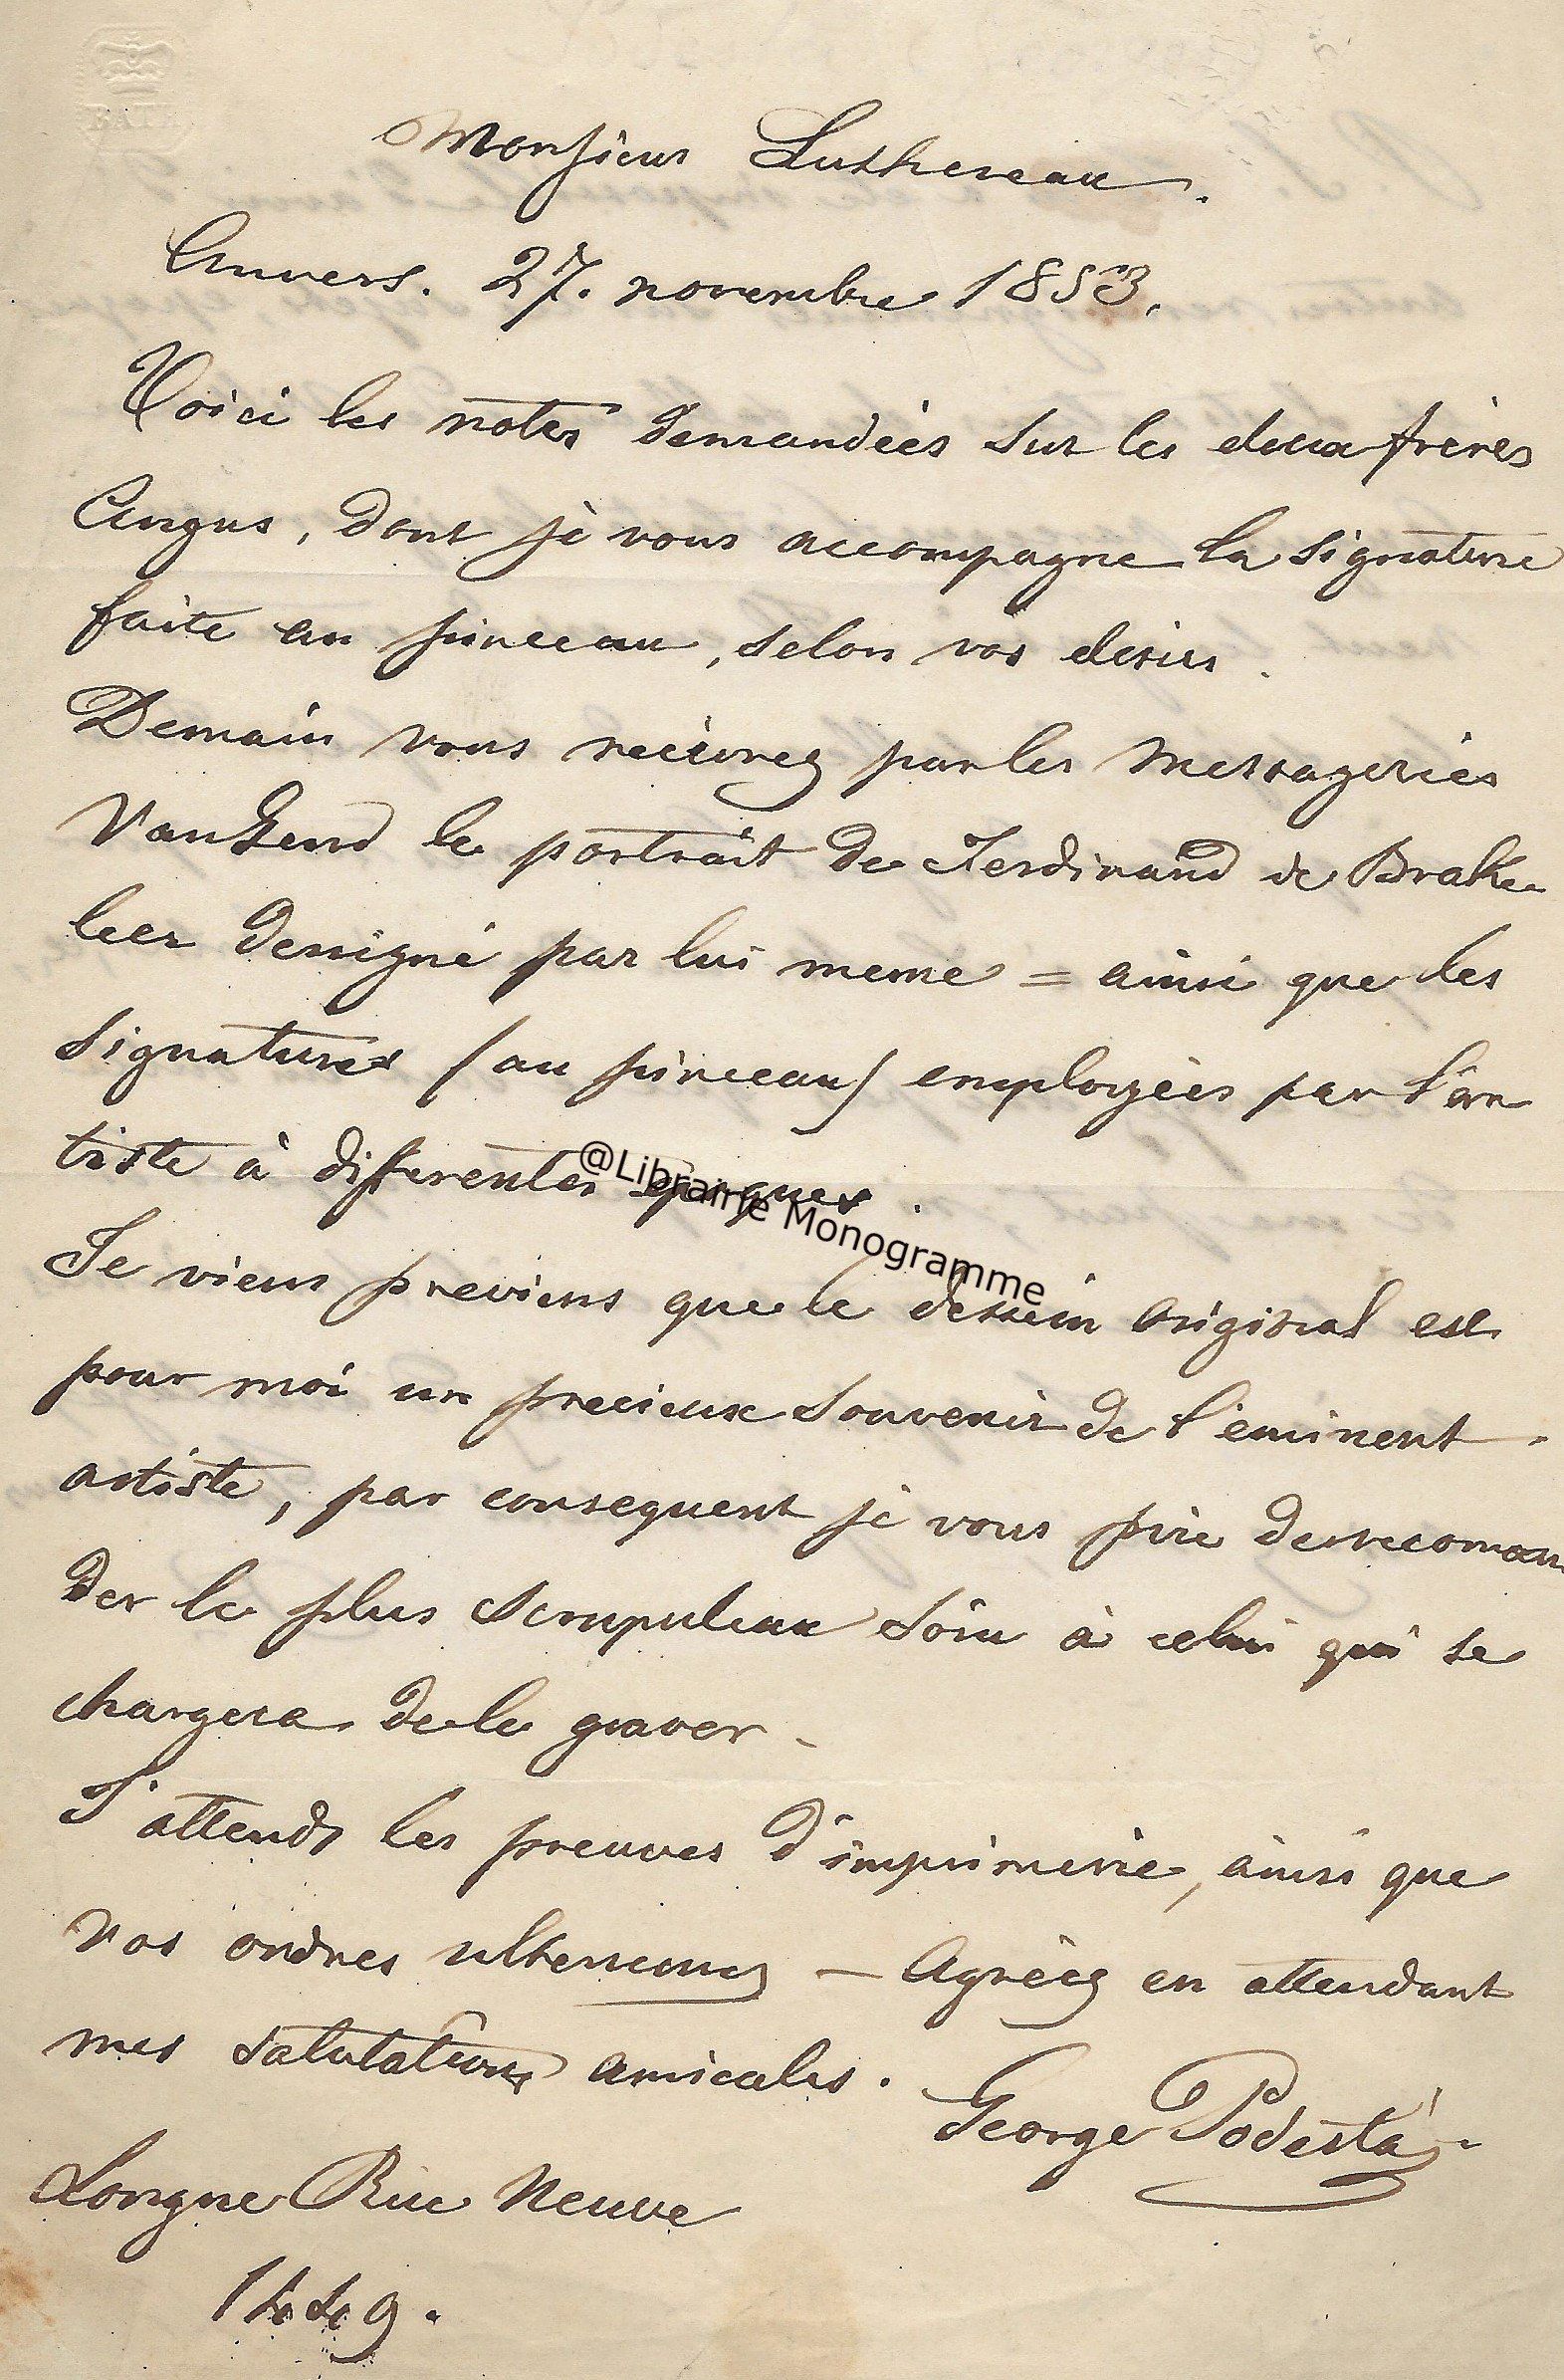 BATH
Monsieur Luthereau.
Anvers. 27. novembre 1853.
Voici les notes demandées sur les deux frères
Angus, dont je vous accompagne la signature
faite au pinceau, selon vos desirs.
Demain vous recevrez par les Messageries
Van Gend le portrait de Ferdinand de Brake
leer dessigné par lui meme = ainsi que les
signatures (au pinceau) employées par l'ar
tiste à differentes epoques.
@Librairie Monogramme
Je viens previens que le dessein original est
pour moi un precieux souvenir de l'eminent
artiste, par consequent je vous prie de recoman
der le plus scrupuleux soin à celui qui se
chargera de le graver -
J'attends les preuves d'imprimerie, ainsi que
vos ordres ulterieurs — Agréez en attendant
mes salutations amicales.
George Podestà
Longue Rue Neuve